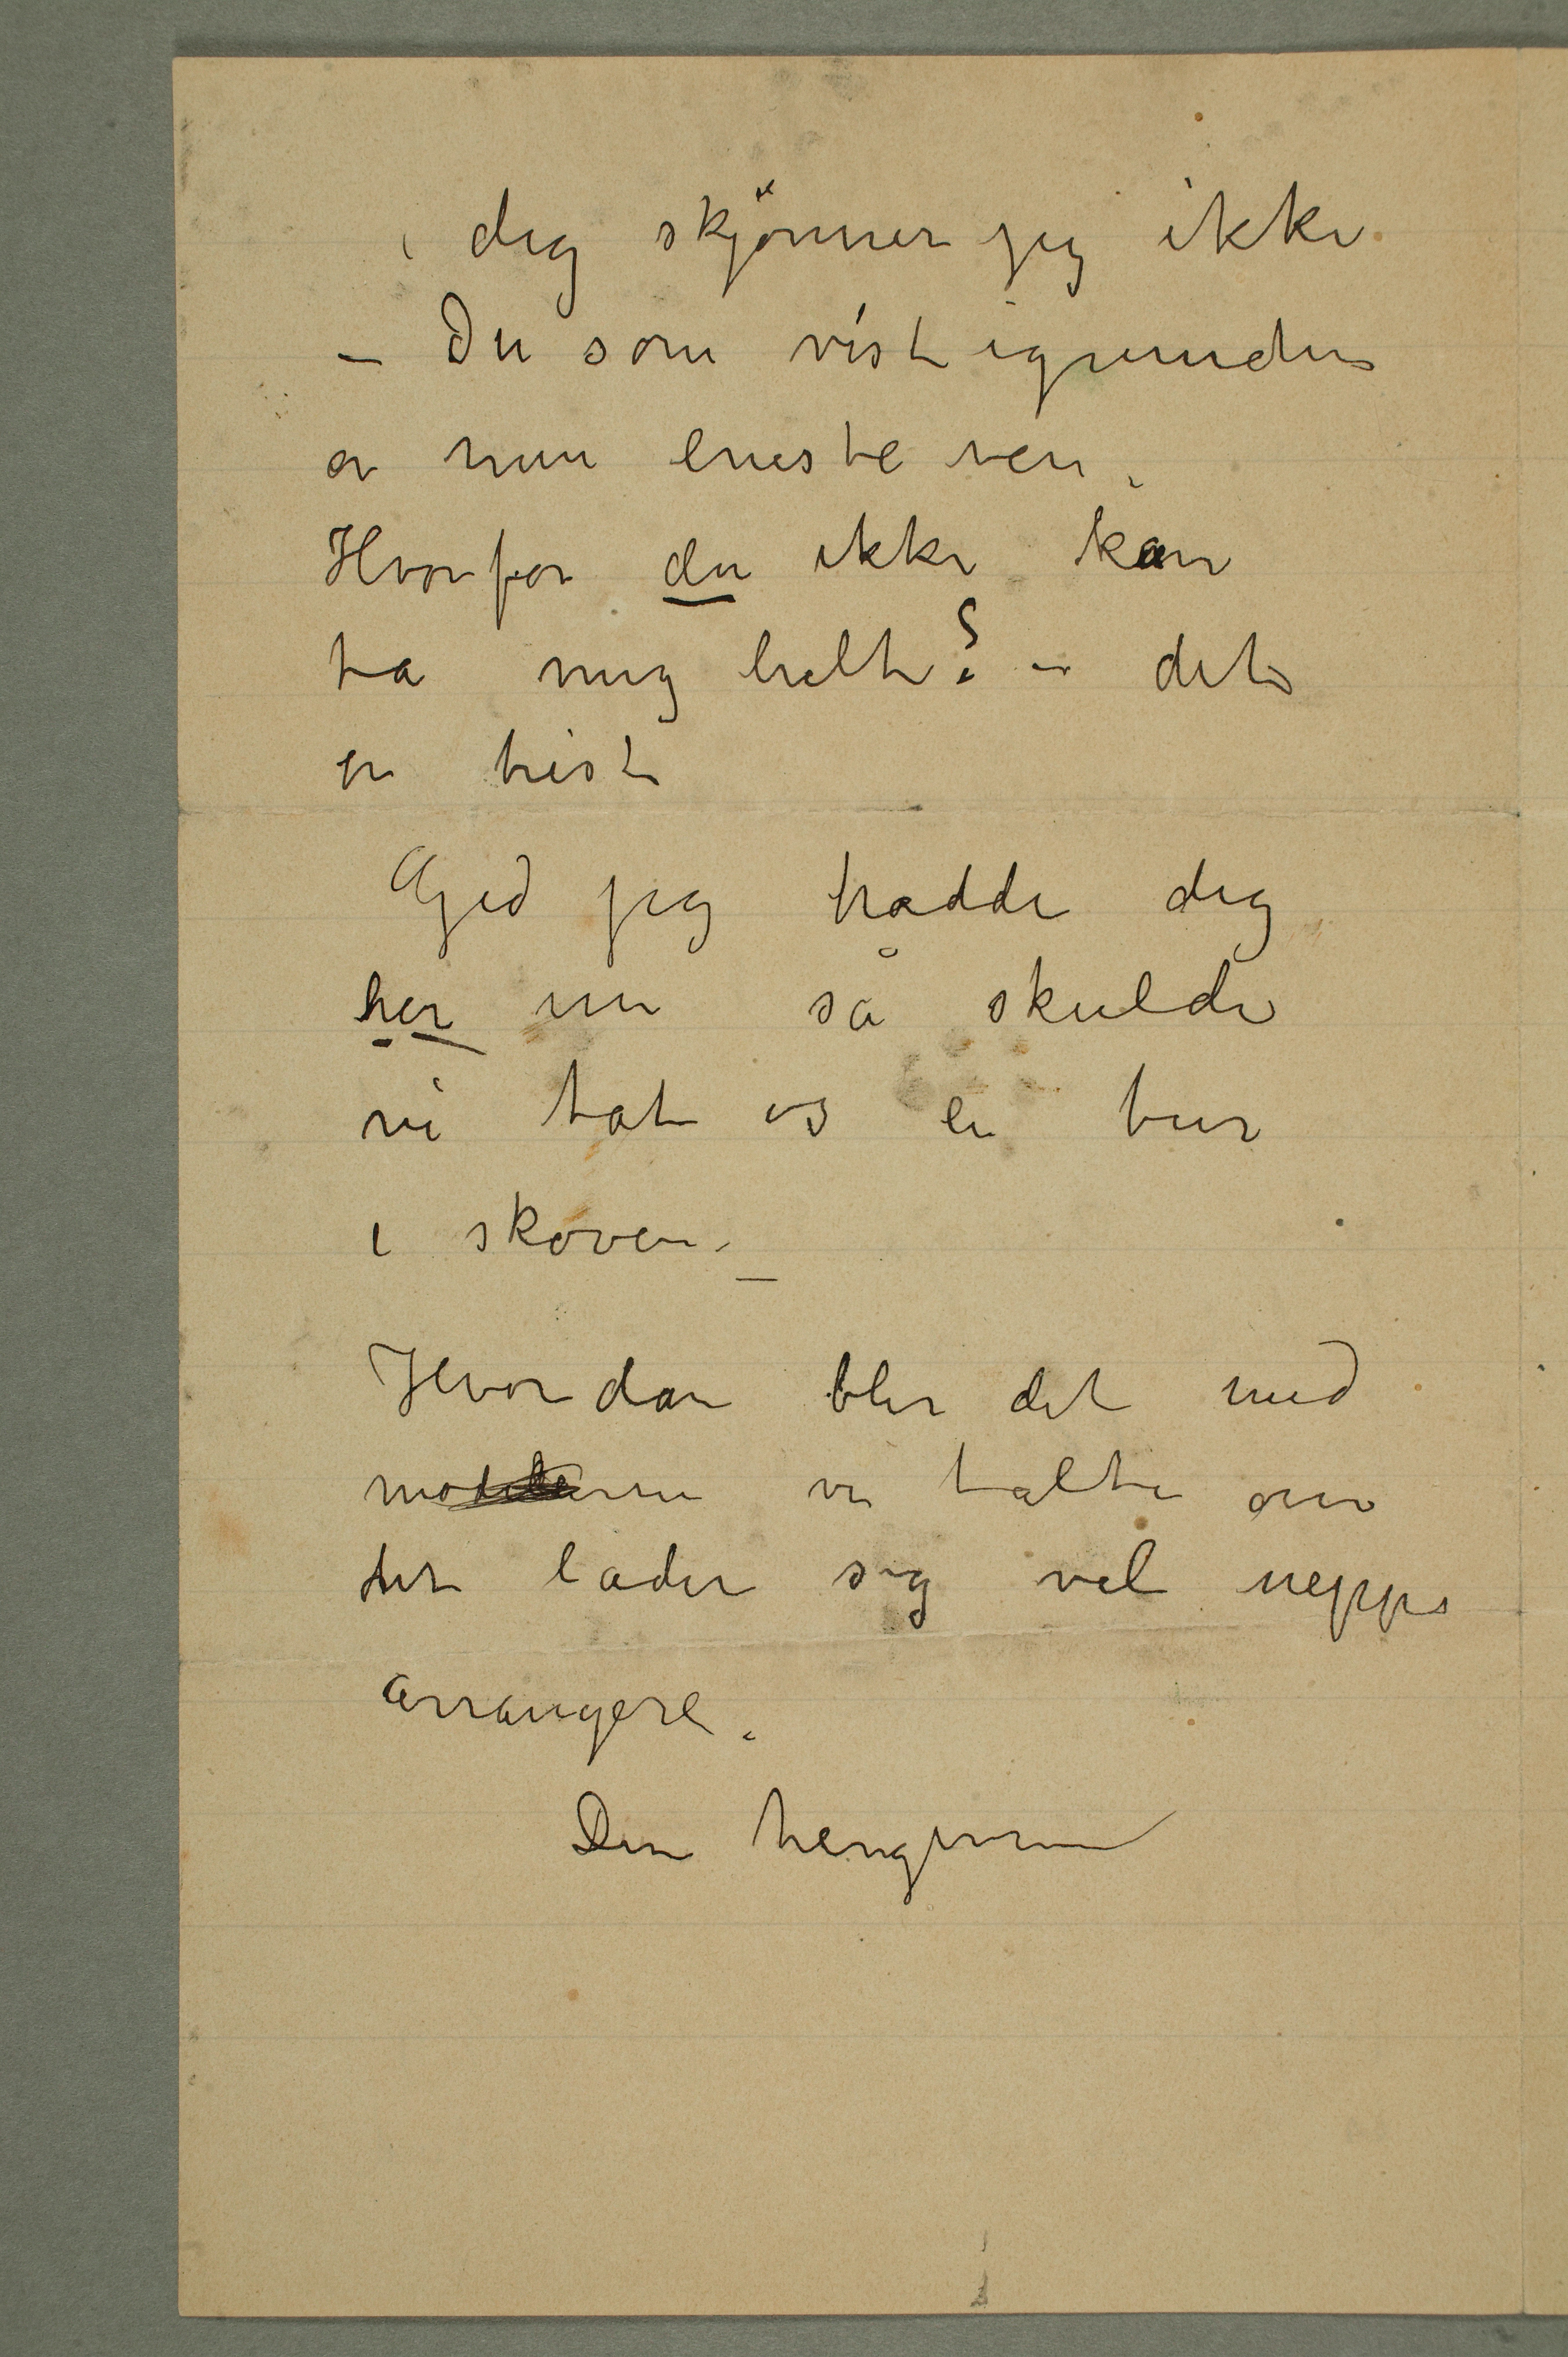 i dig skjønner jeg ikke
– Du som vist igrunden
er min eneste ven.
Hvorfor du ikke kan
ta mig helt? – det
er trist
Gid jeg hadde dig
her nu så skulde
vi tat os en tur
i skoven. –
Hvordan blir det med
vi talte om
det lader sig vel neppe
arrangere.
Din hengivne